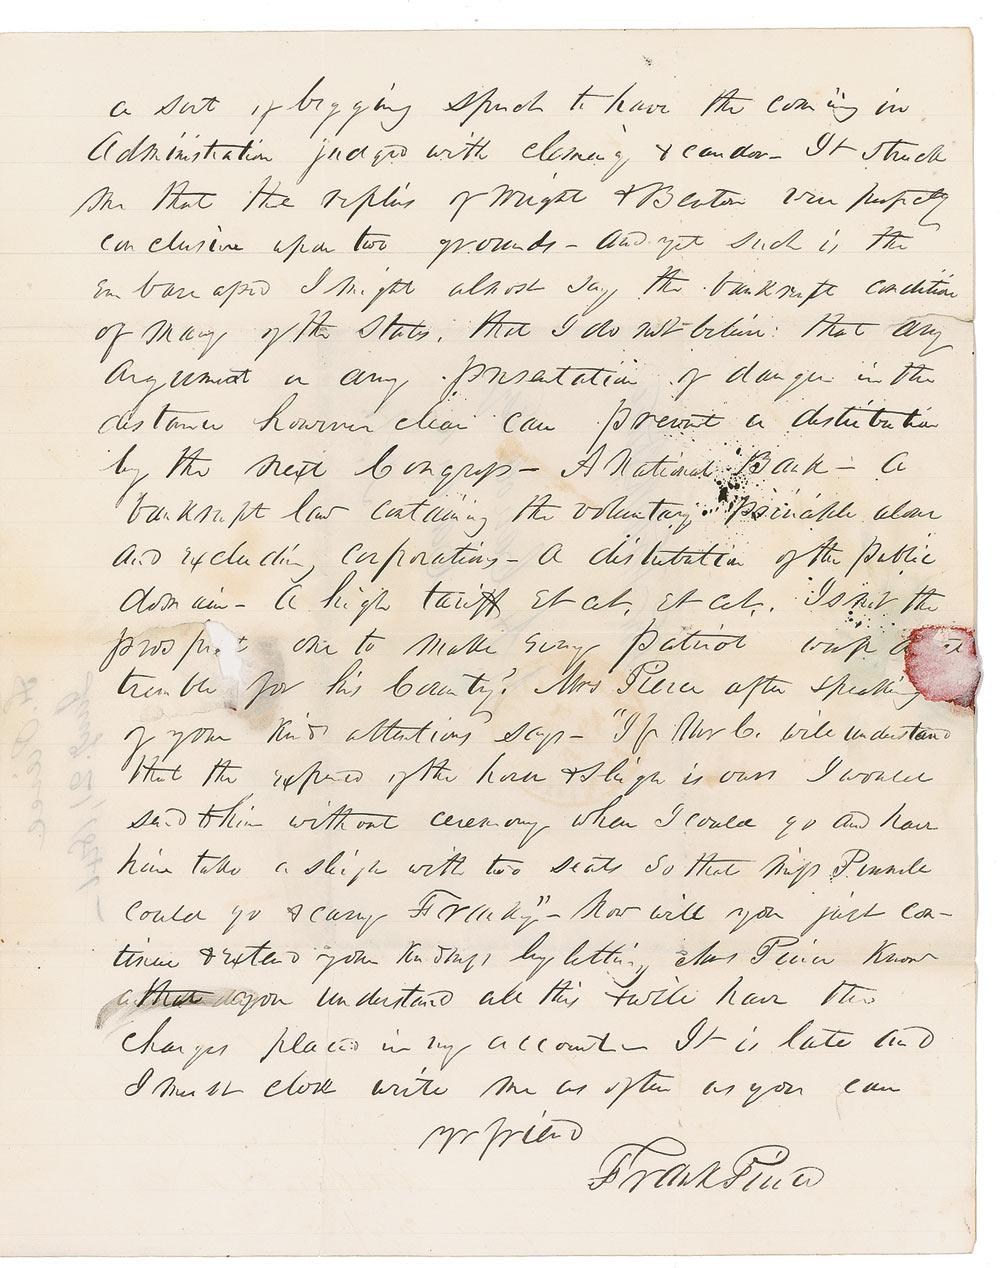 a sort of begging speech to have the coming in
Administration judged with clemency & candor – It struck
me that the replies of Wright & Benton were perfectly
conclusive upon two grounds – and yet such is the
embarassed I might almost say the bankrupt condition
of many of the States, that I do not believe that any
argument or any presentation of danger in the
distance however clear can prevent a distribution
by the next Congress – A National Bank – a
bankrupt law containing the voluntary principle alone
and excluding corporations – a distribution of the public
domain – a high tariff et cet. et cet. Is not the
prospect one to make every patriot weep &
tremble for his Country? Mrs Pierce after speaking
of your kind attentions says – "If Mr C. will understand
that the expense of the horse & sleigh is ours I would
send to him without ceremony when I could go and have
him take a sleigh with two seats so that Miss
could go & carry Franky" – Now will you just con-
tinue & extend your kindness by letting Mrs Pierce know
that you understand all this & will have the
charges placed in my account – It is late and
I must close write me as often as you can
yr friend
Frank Pierce
F. Pierce